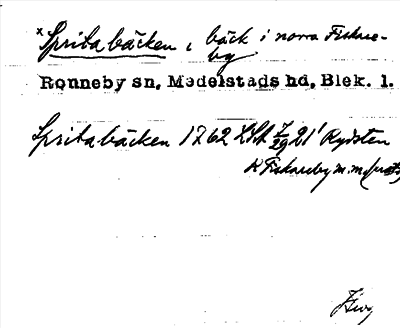 x Spritabäcken, bäck i norra Fiskare-
by
Ronneby sn, Medelstads hd, Blek. l.
Spritabäcken 1762 LSA 7/29 21' Rydsten
R Fiskareby m.m.